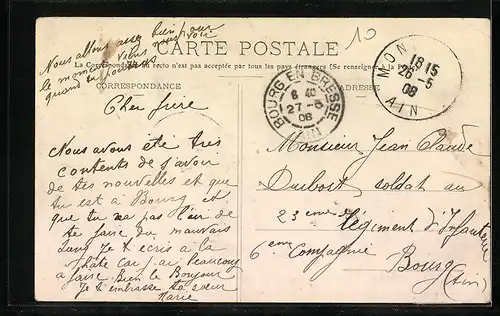 Nous allons assez bien pour
le moment viens nous voir
quand tu pourras
10
CARTE POSTALE
La Correspondance au recto n'est pas acceptée par tous les pays étrangers (Se renseigner à la Poste)
CORRESPONDANCE
ADRESSE
BOURG EN BRESSE
6 40
27-5
08
AIN
MON
18 15
26-5
08
AIN
Cher frère
Nous avons été très
contents de s'avoir
de tes nouvelles et que
tu est à Bourg et
que tu na pas l'air de
te faire du mauvais
sang Je t ecris a la
hate car j'ai beaucoup
a faire Bien le Bonjour
Je t embrasse ta sœur
Marie
Monsieur Jean Claude
Dubost soldat au
23eme Régiment d'Infanterie
6eme Compagnie
Bourg
(Ain)